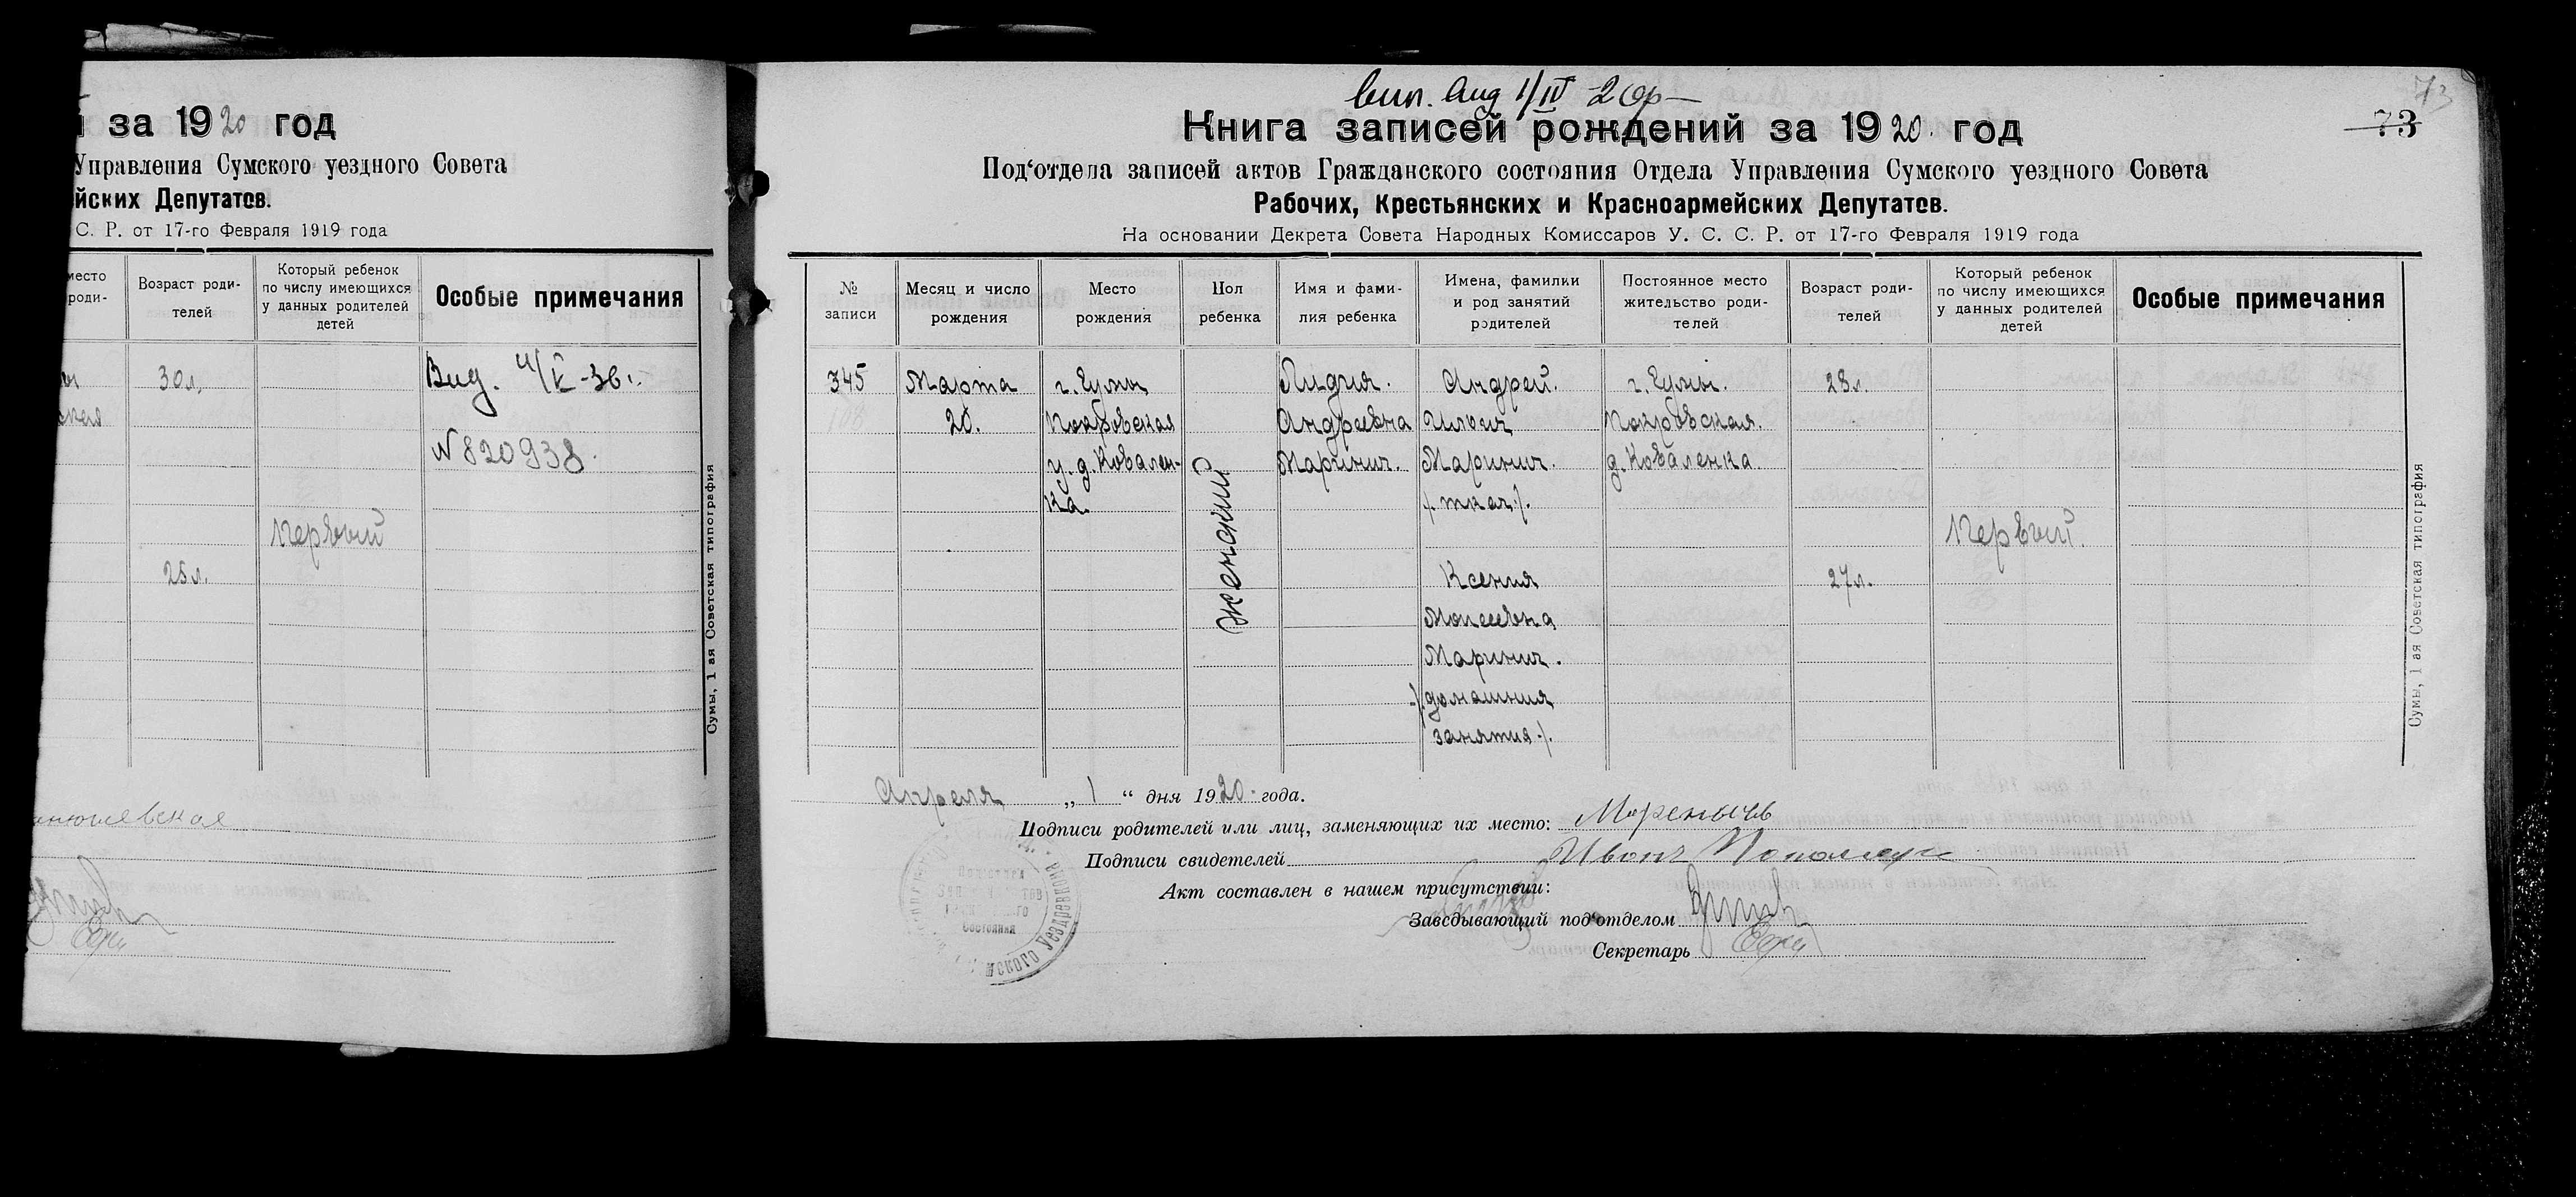 за 1920 год
Управления Сумского уездного Совета
йских Депутатов.
С. Р. от 17-го Февраля 1919 года
место
роди-
Возраст роди-
телей
Который ребенок
по числу имеющихся
у данных родителей
детей
Особые примечания
30 л.
Вид.
ская
N 820938.
Первый
25 л.
Сумы, 1 ая Советская типография
73
73
Книга записей рождений за 1920 год
Под‘отдела записей актов Гражданского состояния Отдела Управления Сумского уездного Совета
Рабочих, Крестьянских и Красноармейских Депутатов.
На основании Декрета Совета Народных Комиссаров У. С. С. Р. от 17-го Февраля 1919 года
№
записи
Месяц и число
рождения
Место
рождения
Пол
ребенка
Имя и фами-
лия ребенка
Имена, фамилии
и род занятий
родителей
Постоянное место
жительство роди-
телей
Возраст роди-
телей
Который ребенок
по числу имеющихся
у данных родителей
детей
Особые примечания
345
Марта
20.
г. Сумы
Покровская
у. д. Ковален-
ка.
женский
Лидия.
Андреевна
Маринич.
Андрей.
Ильич
Маринич.
/. ткач ./.
Ксения
Моисеевна
Маринич.
./. домашния
занятия ./.
г. Сумы.
Покровская.
д. Коваленка.
28 л.
27 л.
Первый.
Сумы, 1 ая Советская типография
Апреля „ 1 “ дня 1920 года.
Подписи родителей или лиц, заменяющих их место: Мореничъ
Подписи свидетелей Иванъ
Акт составлен в нашем присутствии:
Заведывающий под‘отделом
Секретарь
Состояния